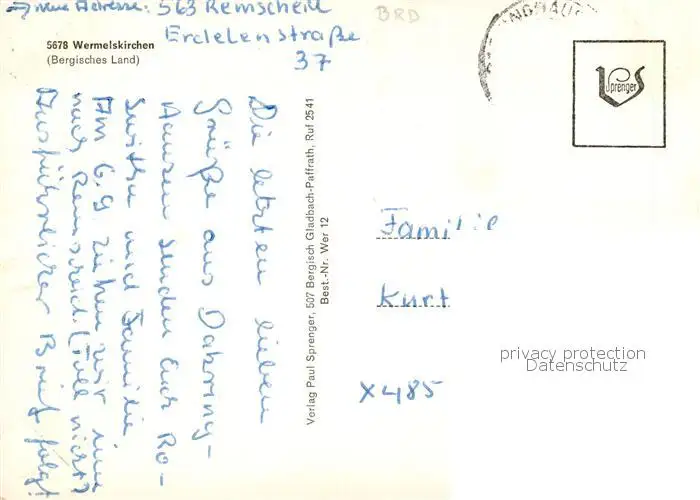 → neue Adresse: 563 Remscheid
Erdelenstraße
37
BRD
5678 Wermelskirchen
(Bergisches Land)
Sprenger
Die letzten lieben
Grüße aus Dabring-
hausen senden Euch Ro-
switha und Familie
Am 6.9. ziehen wir um
nach Remscheid. (Toll nicht?)
Ausführlicher Brief folgt!
Verlag Paul Sprenger, 507 Bergisch Gladbach-Paffrath, Ruf 2541
Best.-Nr. Wer 12
Familie
Kurt
X485
privacy protection
Datenschutz